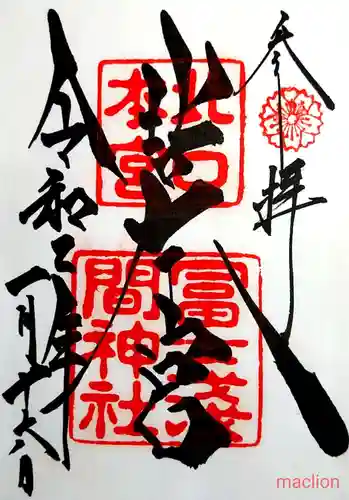 奉拝
北口本宮
北口
本宮
冨士淺
間神社
令和二年一月十六日
maclion